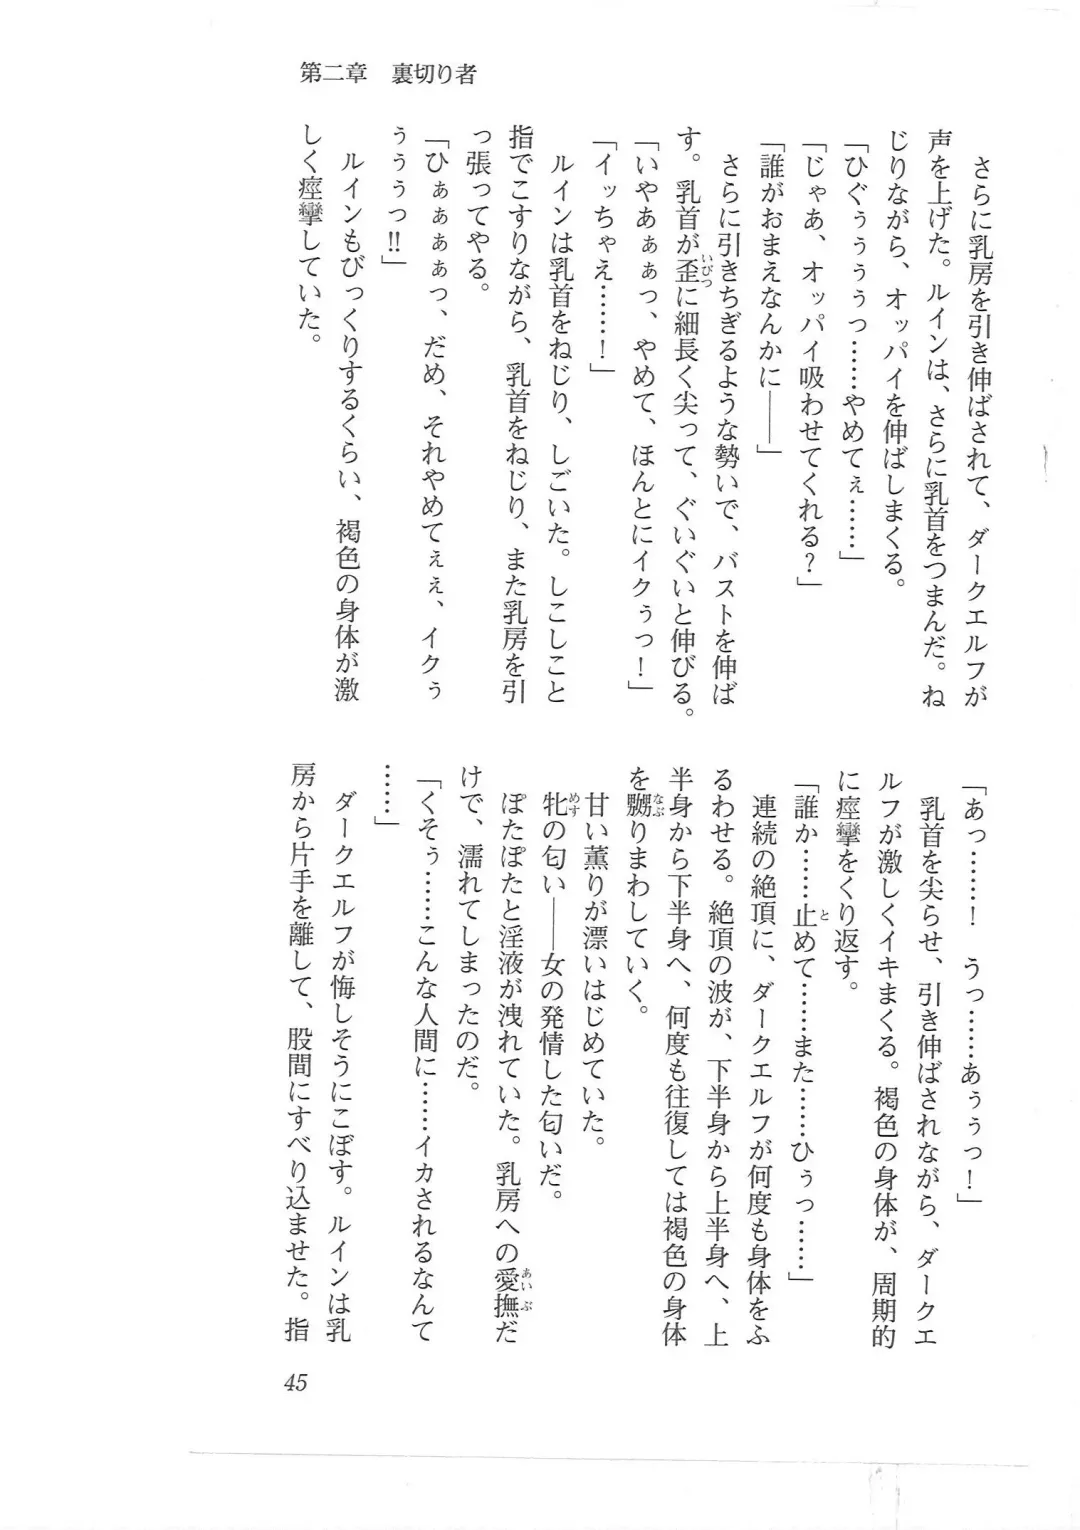 第二章　裏切り者
　さらに乳房を引き伸ばされて、ダークエルフが
声を上げた。ルインは、さらに乳首をつまんだ。ね
じりながら、オッパイを伸ばしまくる。
「ひぐぅぅぅぅっ……やめてぇ……」
「じゃあ、オッパイ吸わせてくれる？」
「誰がおまえなんかに――」
　さらに引きちぎるような勢いで、バストを伸ば
す。乳首が歪いびつに細長く尖って、ぐいぐいと伸びる。
「いやあぁぁっ、やめて、ほんとにイクぅっ！」
「イッちゃえ……！」
　ルインは乳首をねじり、しごいた。しこしこと
指でこすりながら、乳首をねじり、また乳房を引
っ張ってやる。
「ひぁぁぁぁっ、だめ、それやめてぇぇ、イクぅ
ぅぅぅっ!!」
　ルインもびっくりするくらい、褐色の身体が激
しく痙攣していた。
「あっ……！　うっ……あぅぅっ！」
　乳首を尖らせ、引き伸ばされながら、ダークエ
ルフが激しくイキまくる。褐色の身体が、周期的
に痙攣をくり返す。
「誰か……止とめて……また……ひぅっ……」
　連続の絶頂に、ダークエルフが何度も身体をふ
るわせる。絶頂の波が、下半身から上半身へ、上
半身から下半身へ、何度も往復しては褐色の身体
を嬲なぶりまわしていく。
　甘い薫りが漂いはじめていた。
　牝めすの匂い――女の発情した匂いだ。
　ぽたぽたと淫液が洩れていた。乳房への愛撫あいぶだ
けで、濡れてしまったのだ。
「くそぅ……こんな人間に……イカされるなんて
……」
　ダークエルフが悔しそうにこぼす。ルインは乳
房から片手を離して、股間にすべり込ませた。指
45